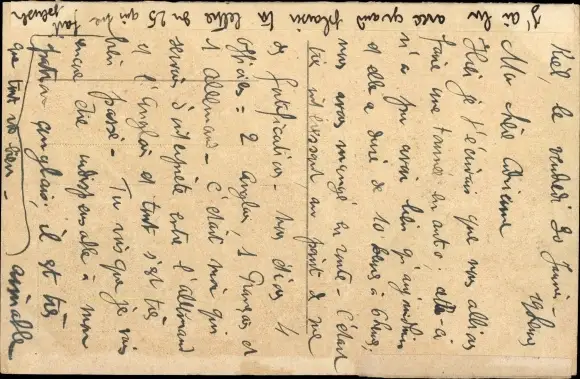 Kiel, le vendredi 30 Janvier
Ma chère Adrienne
Hier je t'écrivais que nous allions
faire une tournée en auto; elle
n'a pu avoir lieu qu'aujourd'hui
et elle a duré de 10 heures à 6 heures;
nous avons mangé en route - C'était
très intéressant, au point de vue
des fortifications - nous étions 4
officiers = 2 anglais, 1 français et
1 allemand - c'était moi qui
servais d'interprète entre l'allemand
et l'anglais et tout s'est très
bien passé - Tu vois que je vais
être indispensable à mon
patron anglais; il est très
aimable
que tout va bien -
J'ai lu avec grand plaisir ta lettre du 25 qui me fait